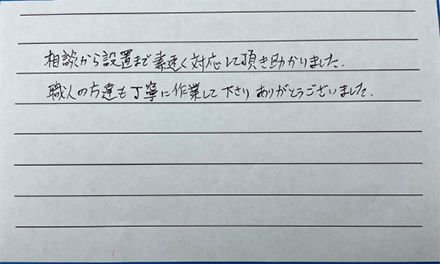 相談から設置まで素速く対応して頂き助かりました.
職人の方達も丁寧に作業して下さりありがとうございました.